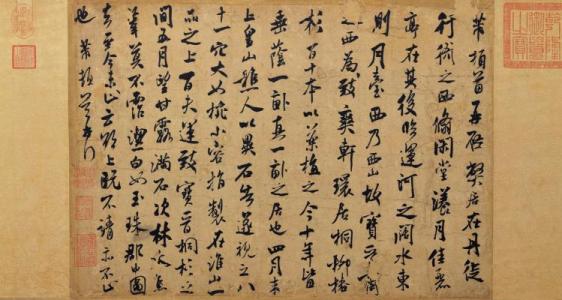 芾頓首再啟弊居在丹徒
行衙之西翛閑堂漾月佳麗
亭在其後臨運河之闊水東
則月臺西乃西山故寶晉齋
之西為致爽軒環居桐柳椿
杉百十本以藥植之今十年皆
垂蔭一畝真一畝之居也四月末
上皇山樵人以異石告遂視之八
十一穴大如椀小容指製在淮山一
品之上百夫運致寶晉桐杉之
間五月望甘露滿石次林木焦
葦莫不霑潔白如玉珠郡中圖
去至今未止云欲上既不請亦不止
也 芾頓首再拜